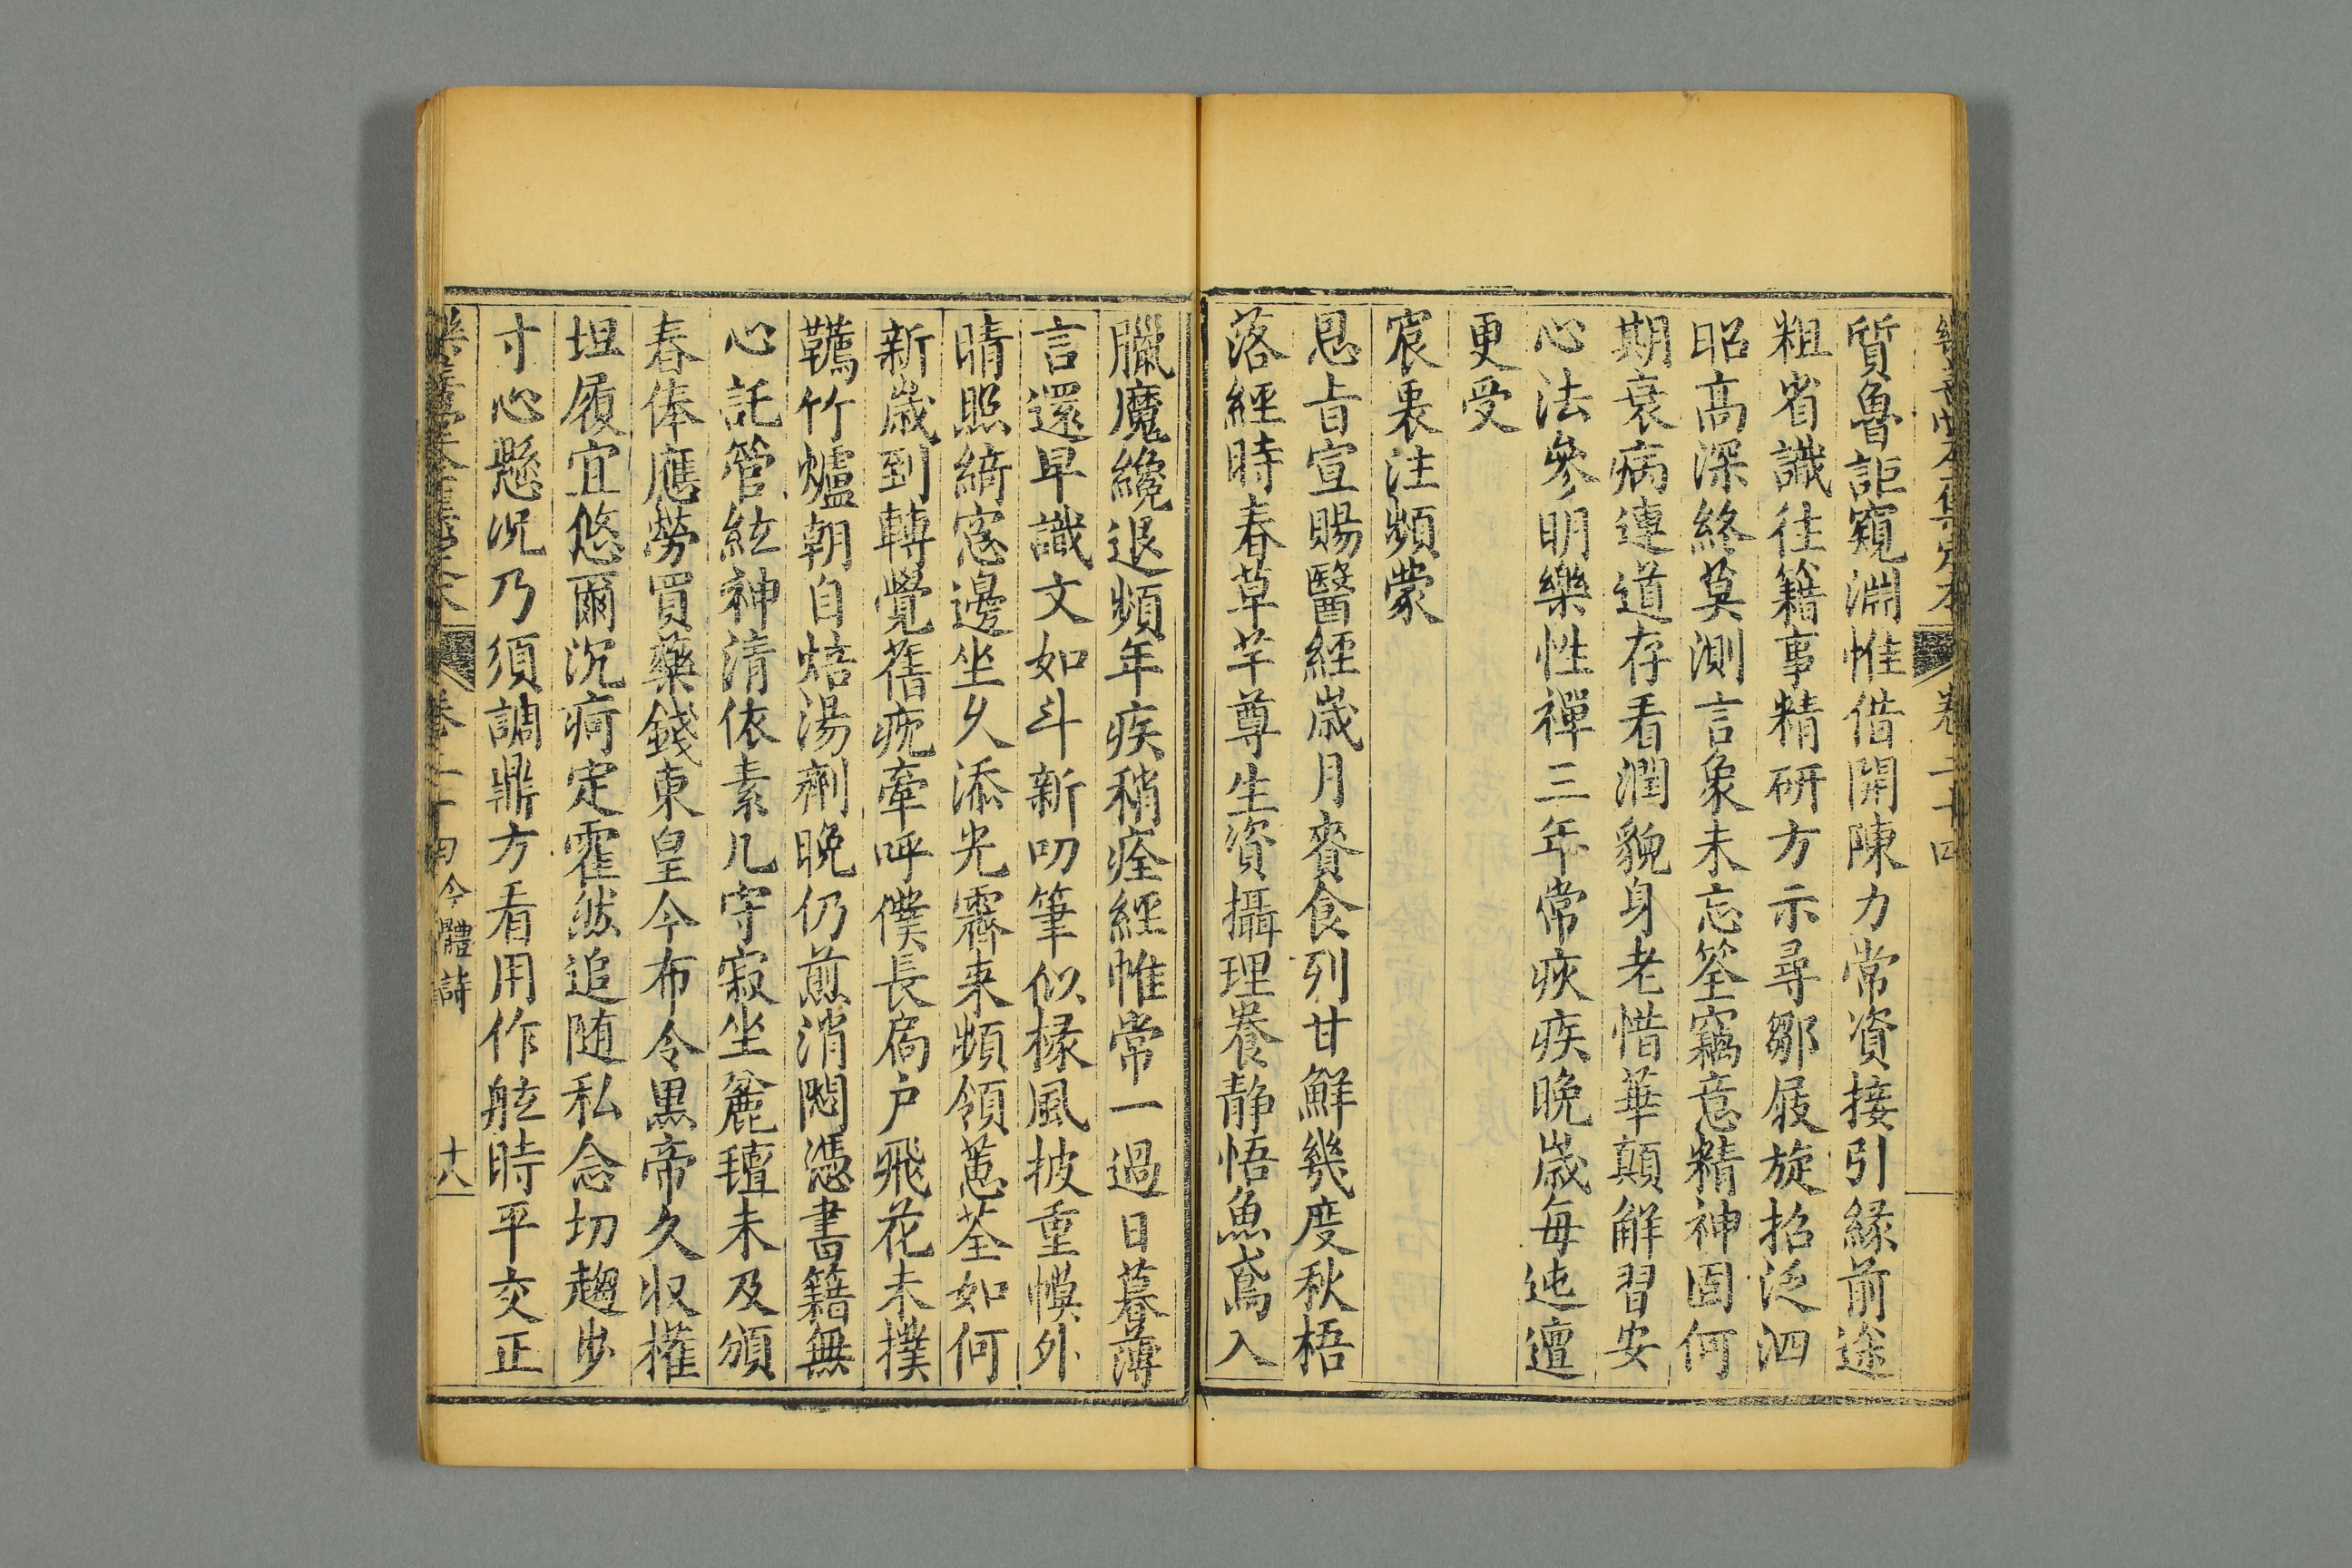 樂善堂全集定本 卷二十四
質魯詎窺淵惟借開陳力常資接引緣前途
粗省識往籍事精研方示尋鄒屐旋招泛泗
昭高深終莫測言象未忘筌竊意精神固何
期衰病連道存看潤貌身老惜華顛解習安
心法參明樂性禪三年常疚疾晚歲每迍邅
更受
宸衷注頻蒙
恩旨宣賜醫經歲月賚食列甘鮮幾度秋梧
落經時春草芊尊生資攝理養静悟魚鳶入
臘魔纔退頻年疾稍痊經帷常一過日暮薄
言還早識文如斗新叨筆似椽風披重幙外
晴照綺窓邊坐久添光霽来頻領蕙荃如何
新歲到轉覺舊疴牽呼僕長扃户飛花未撲
韉竹爐朝自焙湯劑晚仍煎消悶憑書籍無
心託管絃神清依素几守寂坐麄氊未及頒
春俸應勞買藥錢東皇今布令黒帝久収權
坦履宜悠爾沉痾定霍然追随私念切趨步
寸心懸况乃須調鼎方看用作舷時平交正
卷二十四 今體詩 十八